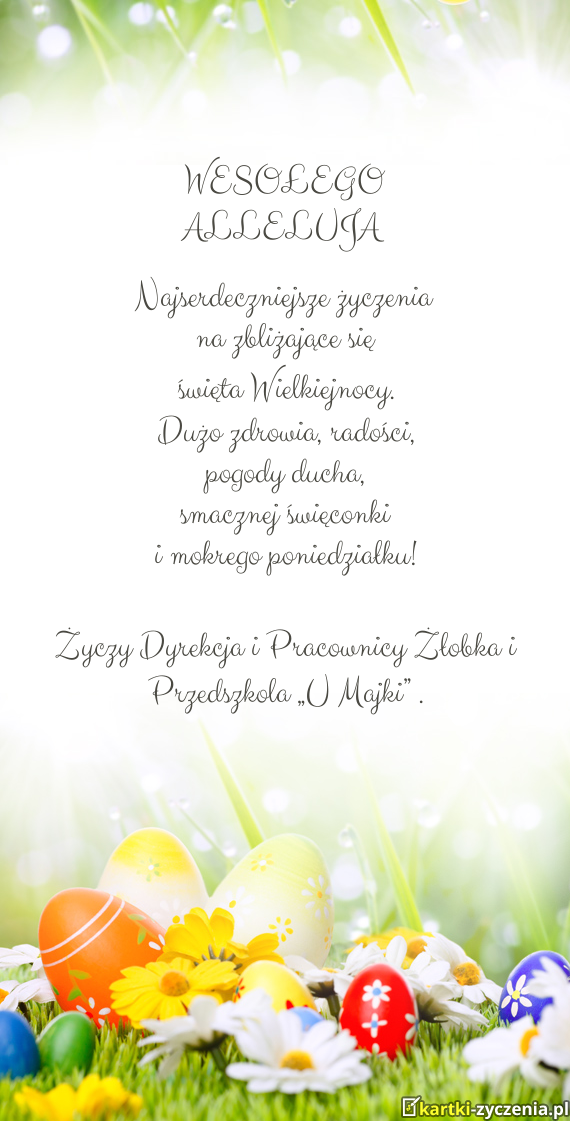 WESOŁEGO
ALLELUJA
Najserdeczniejsze życzenia
na zbliżające się
święta Wielkiejnocy.
Dużo zdrowia, radości,
pogody ducha,
smacznej święconki
i mokrego poniedziałku!
Życzy Dyrekcja i Pracownicy Żłobka i
Przedszkola „U Majki” .
kartki-zyczenia.pl